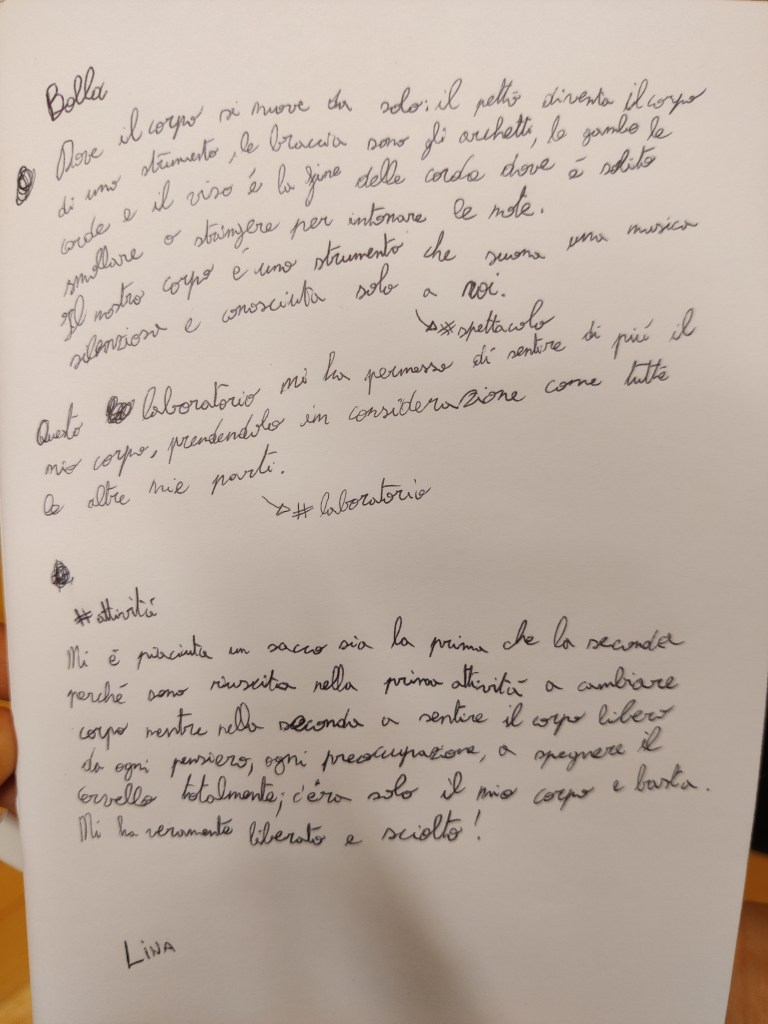 Bolla
Dove il corpo si muove da solo: il petto diventa il corpo
di uno strumento, le braccia sono gli archetti, le gambe le
corde e il viso é la fine delle corde dove é solito
smollare o stringere per intonare le note.
Il nostro corpo é uno strumento che suona una musica
silenziosa e conosciuta solo a noi.
#spettacolo
Questo laboratorio mi ha permesso di sentire di piú il
mio corpo, prendendolo in considerazione come tutte
le altre mie parti.
#laboratorio
#attivitá
Mi é piaciuta un sacco sia la prima che la seconda
perché sono riuscita nella prima attivitá a cambiare
corpo mentre nella seconda a sentire il corpo libero
da ogni pensiero, ogni preoccupazione, a spegnere il
cervello totalmente; c'éra solo il mio corpo e basta.
Mi ha veramente liberato e sciolto!
LINA